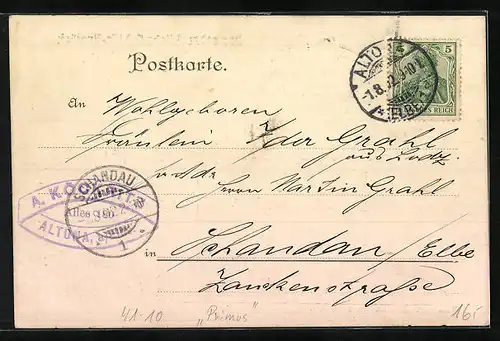 Postkarte.
An Wohlgeboren
Fräulein Ida Grahl
aus Lodz.
p. Adr. Herrn Martin Grahl
in Schandau / Elbe
Zaukenstraße
ALTONA
1.8.02. 9-10 V.
* (ELBE)
5
REICH
SCHANDAU
1
A. KÖ
ALTONA
41-10
„Primus"
16,-